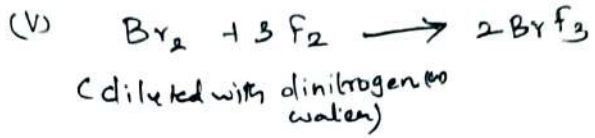 (V) Br₂ + 3 F₂ ⟶ 2 Br F₃
(diluted with dinitrogen
water)